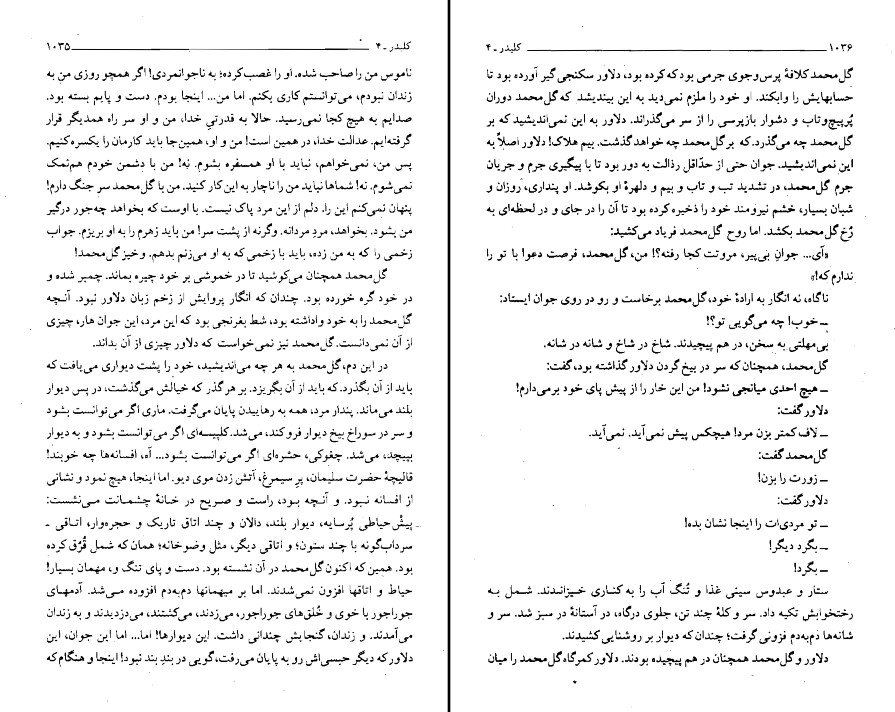 کلیدر ـ ۴ ۱۰۳۵
ناموس من را صاحب شده. او را غصب کرده؛ به ناجوانمردی! اگر همچو روزی من به
زندان نبودم، می‌توانستم کاری بکنم. اما من... اینجا بودم. دست و پایم بسته بود.
صدایم به هیچ کجا نمی‌رسید. حالا به قدرتیِ خدا، من و او سر راه همدیگر قرار
گرفته‌ایم. عدالت خدا، در همین است! من و او، همین‌جا باید کارمان را یکسره کنیم.
پس من، نمی‌خواهم، نباید با او همسفره بشوم. نِه! من با دشمن خودم هم‌نمک
نمی‌شوم. نه! شماها نباید من را ناچار به این کار کنید. من با گل‌محمد سر جنگ دارم!
پنهان نمی‌کنم این را. دلم از این مرد پاک نیست. با اوست که بخواهد چه‌جور درگیر
من بشود. بخواهد، مردِ مردانه. وگرنه از پشت سر! من باید زهرم را به او بریزم. جواب
زخمی را که به من زده، باید با زخمی که به او می‌زنم بدهم. وخیز گل‌محمد!
گل‌محمد همچنان می‌کوشید تا در خموشی بر خود چیره بماند. چمبر شده و
در خود گره خورده بود. چندان که انگار پروایش از زخم زبان دلاور نبود. آنچه
گل‌محمد را به خود واداشته بود، شط بغرنجی بود که این مرد، این جوان هار، چیزی
از آن نمی‌دانست. گل‌محمد نیز نمی‌خواست که دلاور چیزی از آن بداند.
در این دم، گل‌محمد به هر چه می‌اندیشید، خود را پشت دیواری می‌یافت که
باید از آن بگذرد. که باید از آن بگریزد. بر هر گذر که خیالش می‌گذشت، در پس دیوار
بلند می‌ماند. پندار مرد، همه به رهاییدن پایان می‌گرفت. ماری اگر می‌توانست بشود
و سر در سوراخ بیخ دیوار فرو کند، می‌شد. کلپیسه‌ای اگر می‌توانست بشود و به دیوار
بپیچد، می‌شد. چغوکی، حشره‌ای اگر می‌توانست بشود... آه، افسانه‌ها چه خوبند!
قالیچهٔ حضرت سلیمان، پر سیمرغ، آتش زدن موی دیو. اما اینجا، هیچ نمود و نشانی
از افسانه نبود. و آنچه بود، راست و صریح در خانهٔ چشمانت می‌نشست:
پیشْ حیاطی پُرسایه، دیوار بلند، دالان و چند اتاق تاریک و حجره‌وار، اتاقی ـ
سرداب‌گونه با چند ستون؛ و اتاقی دیگر، مثل وضوخانه؛ همان که شمل قُرُق کرده
بود. همین که اکنون گل‌محمد در آن نشسته بود. دست و پای تنگ و، مهمان بسیار!
حیاط و اتاقها افزون نمی‌شدند. اما بر میهمانها دم‌به‌دم افزوده می‌شد. آدمهای
جوراجور با خوی و خُلق‌های جوراجور، می‌زدند، می‌کشتند، می‌دزدیدند و به زندان
می‌آمدند. و زندان، گنجایش چندانی داشت. این دیوارها! اما... اما این جوان، این
دلاور که دیگر حبسی‌اش رو به پایان می‌رفت، گویی در بندِ بند نبود! اینجا و هنگام که
۱۰۳۶ کلیدر ـ ۴
گل‌محمد کلافهٔ پرس‌وجوی جرمی بود که کرده بود، دلاور سکنجی گیر آورده بود تا
حسابهایش را وابکند. او خود را ملزم نمی‌دید به این بیندیشد که گل‌محمد دوران
پُرپیچ‌وتاب و دشوار بازپرسی را از سر می‌گذراند. دلاور به این نمی‌اندیشید که بر
گل‌محمد چه می‌گذرد. که بر گل‌محمد چه خواهد گذشت. بیم هلاک! دلاور اصلاً به
این نمی‌اندیشید. جوان حتی از حدّاقل رذالت به دور بود تا با پیگیری جرم و جریان
جرم گل‌محمد، در تشدید تب و تاب و بیم و دلهرهٔ او بکوشد. او پنداری، روزان و
شبان بسیار، خشم نیرومند خود را ذخیره کرده بود تا آن را در جای و در لحظه‌ای به
رُخ گل‌محمد بکشد. اما روح گل‌محمد فریاد می‌کشید:
«آی... جوانِ بی‌پیر، مروتت کجا رفته؟! من، گل‌محمد، فرصت دعوا با تو را
ندارم که!»
ناگاه، نه انگار به ارادهٔ خود، گل‌محمد برخاست و رو در روی جوان ایستاد:
ـ خوب! چه می‌گویی تو؟!
بی‌مهلتی به سخن، در هم پیچیدند. شاخ در شاخ و شانه در شانه.
گل‌محمد، همچنان که سر در بیخ گردن دلاور گذاشته بود، گفت:
ـ هیچ احدی میانجی نشود! من این خار را از پیش پای خود برمی‌دارم!
دلاور گفت:
ـ لاف کمتر بزن مرد! هیچکس پیش نمی‌آید. نمی‌آید.
گل‌محمد گفت:
ـ زورت را بزن!
دلاور گفت:
ـ تو مردی‌ات را اینجا نشان بده!
ـ بگرد دیگر!
ـ بگرد!
ستار و عبدوس سینی غذا و تُنگ آب را به کناری خیزانـدند. شمل بـه
رختخوابش تکیه داد. سر و کلهٔ چند تن، جلوی درگاه، در آستانهٔ در سبز شد. سر و
شانه‌ها دَم‌به‌دم فزونی گرفت؛ چندان که دیوار بر روشنایی کشیدند.
دلاور و گل‌محمد همچنان در هم پیچیده بودند. دلاور کمرگاه گل‌محمد را میان